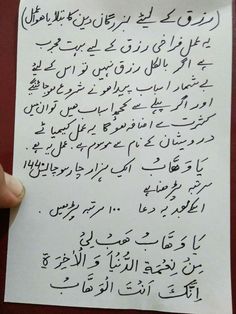 رزق کے لیئے بزرگان دین کا بتلایا ھوا عمل
یہ عمل فراخی رزق کے لیے بہت مجرب
ہے اگر بالکل رزق نہیں تو اس کے لیے
بے شمار اسباب پیدا ھو نے شروع ھو جائینگے
اور اگر پہلے سے کچھ اسباب ھیں تو ان میں
کثرت سے اضافہ ھو گا یہ عمل کیمیائے
درویشاں کے نام سے موسوم ہے۔ عمل یہ ہے۔
یَا وَھَّابُ ایک ہزار چار سو چالیس ۱۴۴۰
مرتبہ پڑھنا ہے
اسکے بعد یہ دعا ۱۰۰ مرتبہ پڑھیں۔
یَا وَھَّابُ ھَبْ لِیْ
مِنْ نِعْمَۃِ الدُّنْیَا وَ الْاٰخِرَۃِ
اِنَّکَ اَنْتَ الْوَھَّابُ